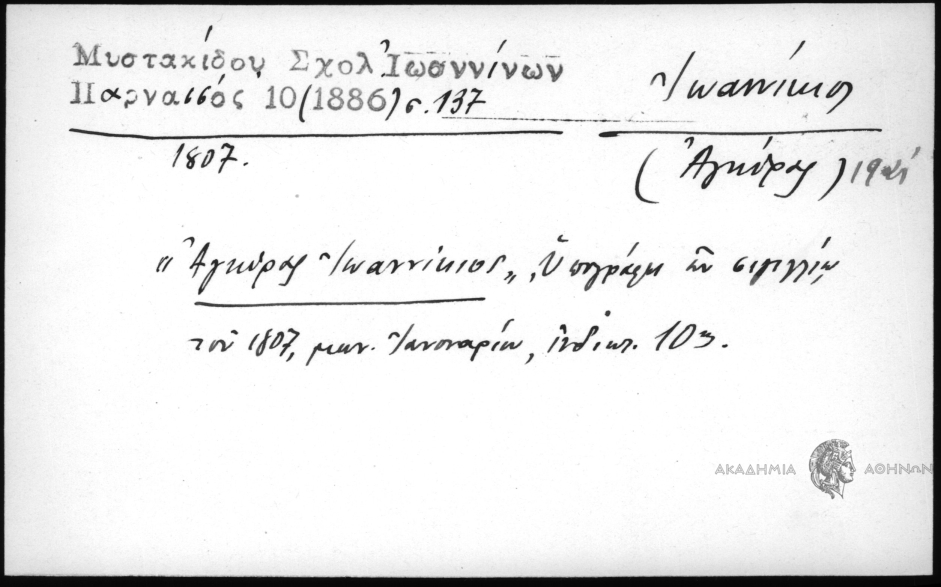 Μυστακίδου Σχολ Ἰωαννίνων
Παρνασσός 10 (1886) σ. 137
Ἰωαννίκιος
1807.
(Ἀγκύρας)
«Ἀγκύρας Ἰωαννίκιος», Ὑπογράφει ἐν σιγιλλίῳ
τοῦ 1807, μην. Ἰανουαρίῳ, ἰνδικτ. 10ης.
ΑΚΑΔΗΜΙΑ ΑΘΗΝΩΝ